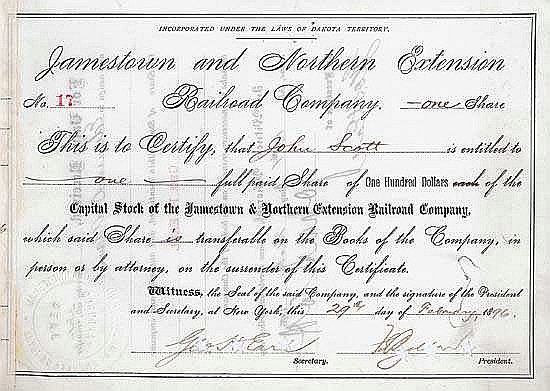 INCORPORATED UNDER THE LAWS OF DAKOTA TERRITORY.
Jamestown and Northern Extension
No. 17 Railroad Company. —one— Share
This is to Certify, that John Scott is entitled to
one full paid Share of One Hundred Dollars each of the
Capital Stock of the Jamestown & Northern Extension Railroad Company,
which said Share is transferable on the Books of the Company, in
person or by attorney, on the surrender of this Certificate.
Witness, the Seal of the said Company, and the signature of the President
and Secretary, at New York, this 29th day of February, 1896.
Geo. H. Earl
Secretary. President.